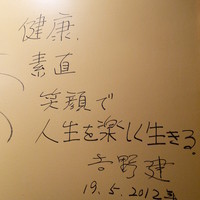 健康、
素直
笑顔で
人生を楽しく生きる。
吉野建
19.5.2012年